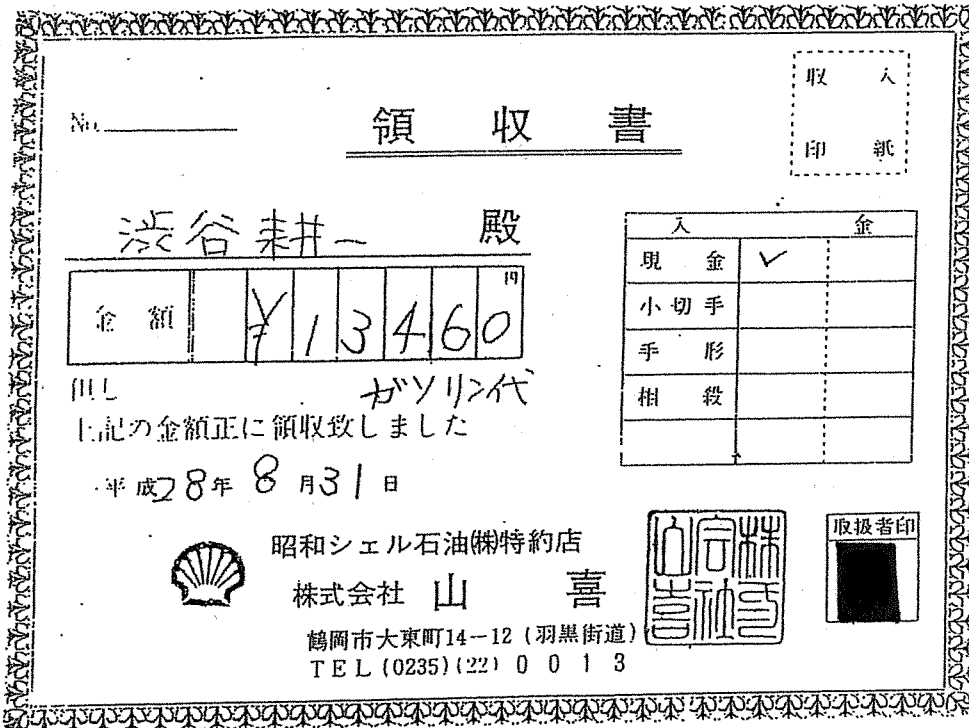 収入
印紙
No.
領収書
渋谷耕一 殿
金額 ¥13460円
但し ガソリン代
上記の金額正に領収致しました
平成28年8月31日
入金
現金 ✓
小切手
手形
相殺
昭和シェル石油㈱特約店
株式会社 山喜
鶴岡市大東町14-12(羽黒街道)
TEL(0235)(22)0013
取扱者印